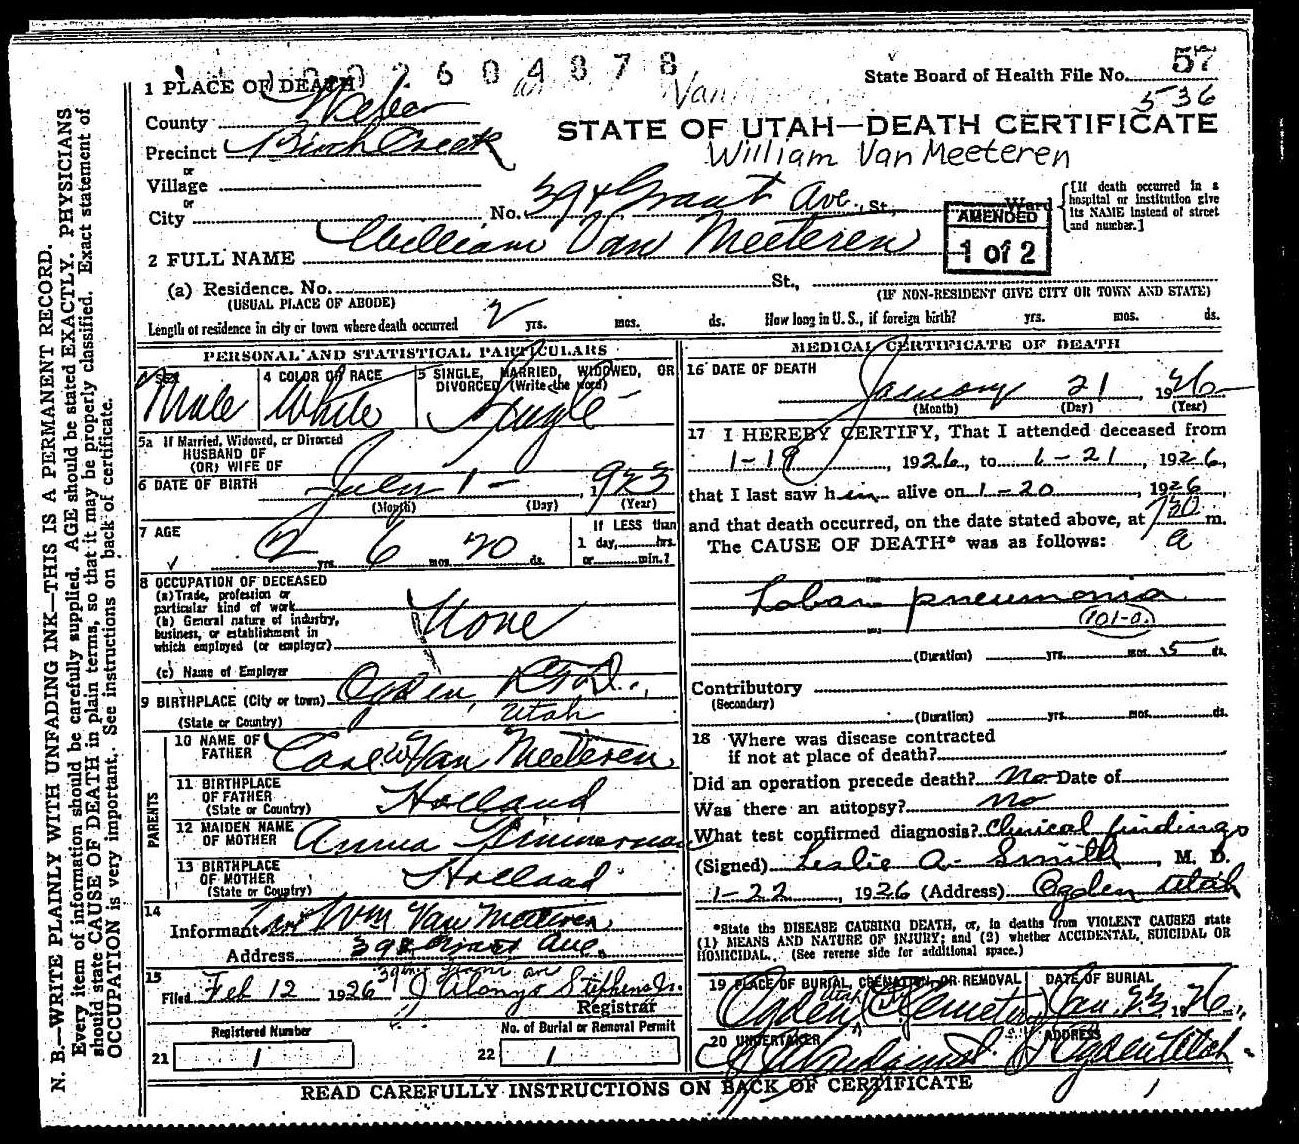 2604878
State Board of Health File No. 57
536
1 PLACE OF DEATH
County Weber
STATE OF UTAH—DEATH CERTIFICATE
Precinct Birch Creek
William Van Meeteren
or
Village
or
City
No. Grant Ave. St., Ward
[If death occurred in a hospital or institution give its NAME instead of street and number.]
AMENDED
1 of 2
2 FULL NAME William Van Meeteren
(a) Residence. No. St.,
(USUAL PLACE OF ABODE) (IF NON-RESIDENT GIVE CITY OR TOWN AND STATE)
Length of residence in city or town where death occurred 2 yrs. mos. ds. How long in U. S., if foreign birth? yrs. mos. ds.
PERSONAL AND STATISTICAL PARTICULARS
3 SEX Male
4 COLOR OR RACE White
5 SINGLE, MARRIED, WIDOWED, OR DIVORCED (Write the word) Single
5a If Married, Widowed, or Divorced
HUSBAND OF
(OR) WIFE OF
6 DATE OF BIRTH July 1 - 1923
(Month) (Day) (Year)
7 AGE 2 yrs. 6 mos. 20 ds.
If LESS than
1 day, hrs.
or min.?
8 OCCUPATION OF DECEASED
(a) Trade, profession or
particular kind of work
(b) General nature of industry,
business, or establishment in
which employed (or employer)
None
(c) Name of Employer
9 BIRTHPLACE (City or town) Ogden,
(State or Country) Utah
PARENTS
10 NAME OF FATHER Van Meeteren
11 BIRTHPLACE OF FATHER (State or Country) Holland
12 MAIDEN NAME OF MOTHER Anna Zimmerman
13 BIRTHPLACE OF MOTHER (State or Country) Holland
14
Informant Wm Van Meeteren
Address Ave.
15
Filed Feb 12 1926 J Alonzo Stephens Jr.
Registrar
Registered Number
21 1
No. of Burial or Removal Permit
22 1
MEDICAL CERTIFICATE OF DEATH
16 DATE OF DEATH January 21, 1926
(Month) (Day) (Year)
17 I HEREBY CERTIFY, That I attended deceased from
1-19, 1926, to 1-21, 1926,
that I last saw him alive on 1-20, 1926,
and that death occurred, on the date stated above, at 730 m.
The CAUSE OF DEATH* was as follows: a
Lobar pneumonia
101-a.
(Duration) yrs. mos. 5 ds.
Contributory
(Secondary)
(Duration) yrs. mos. ds.
18 Where was disease contracted
if not at place of death?
Did an operation precede death? no Date of
Was there an autopsy? no
What test confirmed diagnosis? Clinical findings
(Signed) Leslie A. Smith, M. D.
1-22 1926 (Address) Ogden Utah
*State the DISEASE CAUSING DEATH, or, in deaths from VIOLENT CAUSES state
(1) MEANS AND NATURE OF INJURY; and (2) whether ACCIDENTAL, SUICIDAL OR
HOMICIDAL. (See reverse side for additional space.)
19 PLACE OF BURIAL, CREMATION, OR REMOVAL
Ogden City Cemetery Utah
DATE OF BURIAL
Jan. 23, 1926
20 UNDERTAKER
ADDRESS
Ogden Utah
READ CAREFULLY INSTRUCTIONS ON BACK OF CERTIFICATE
N. B.—WRITE PLAINLY WITH UNFADING INK—THIS IS A PERMANENT RECORD.
Every item of information should be carefully supplied. AGE should be stated EXACTLY. PHYSICIANS
should state CAUSE OF DEATH in plain terms, so that it may be properly classified. Exact statement of
OCCUPATION is very important. See instructions on back of certificate.